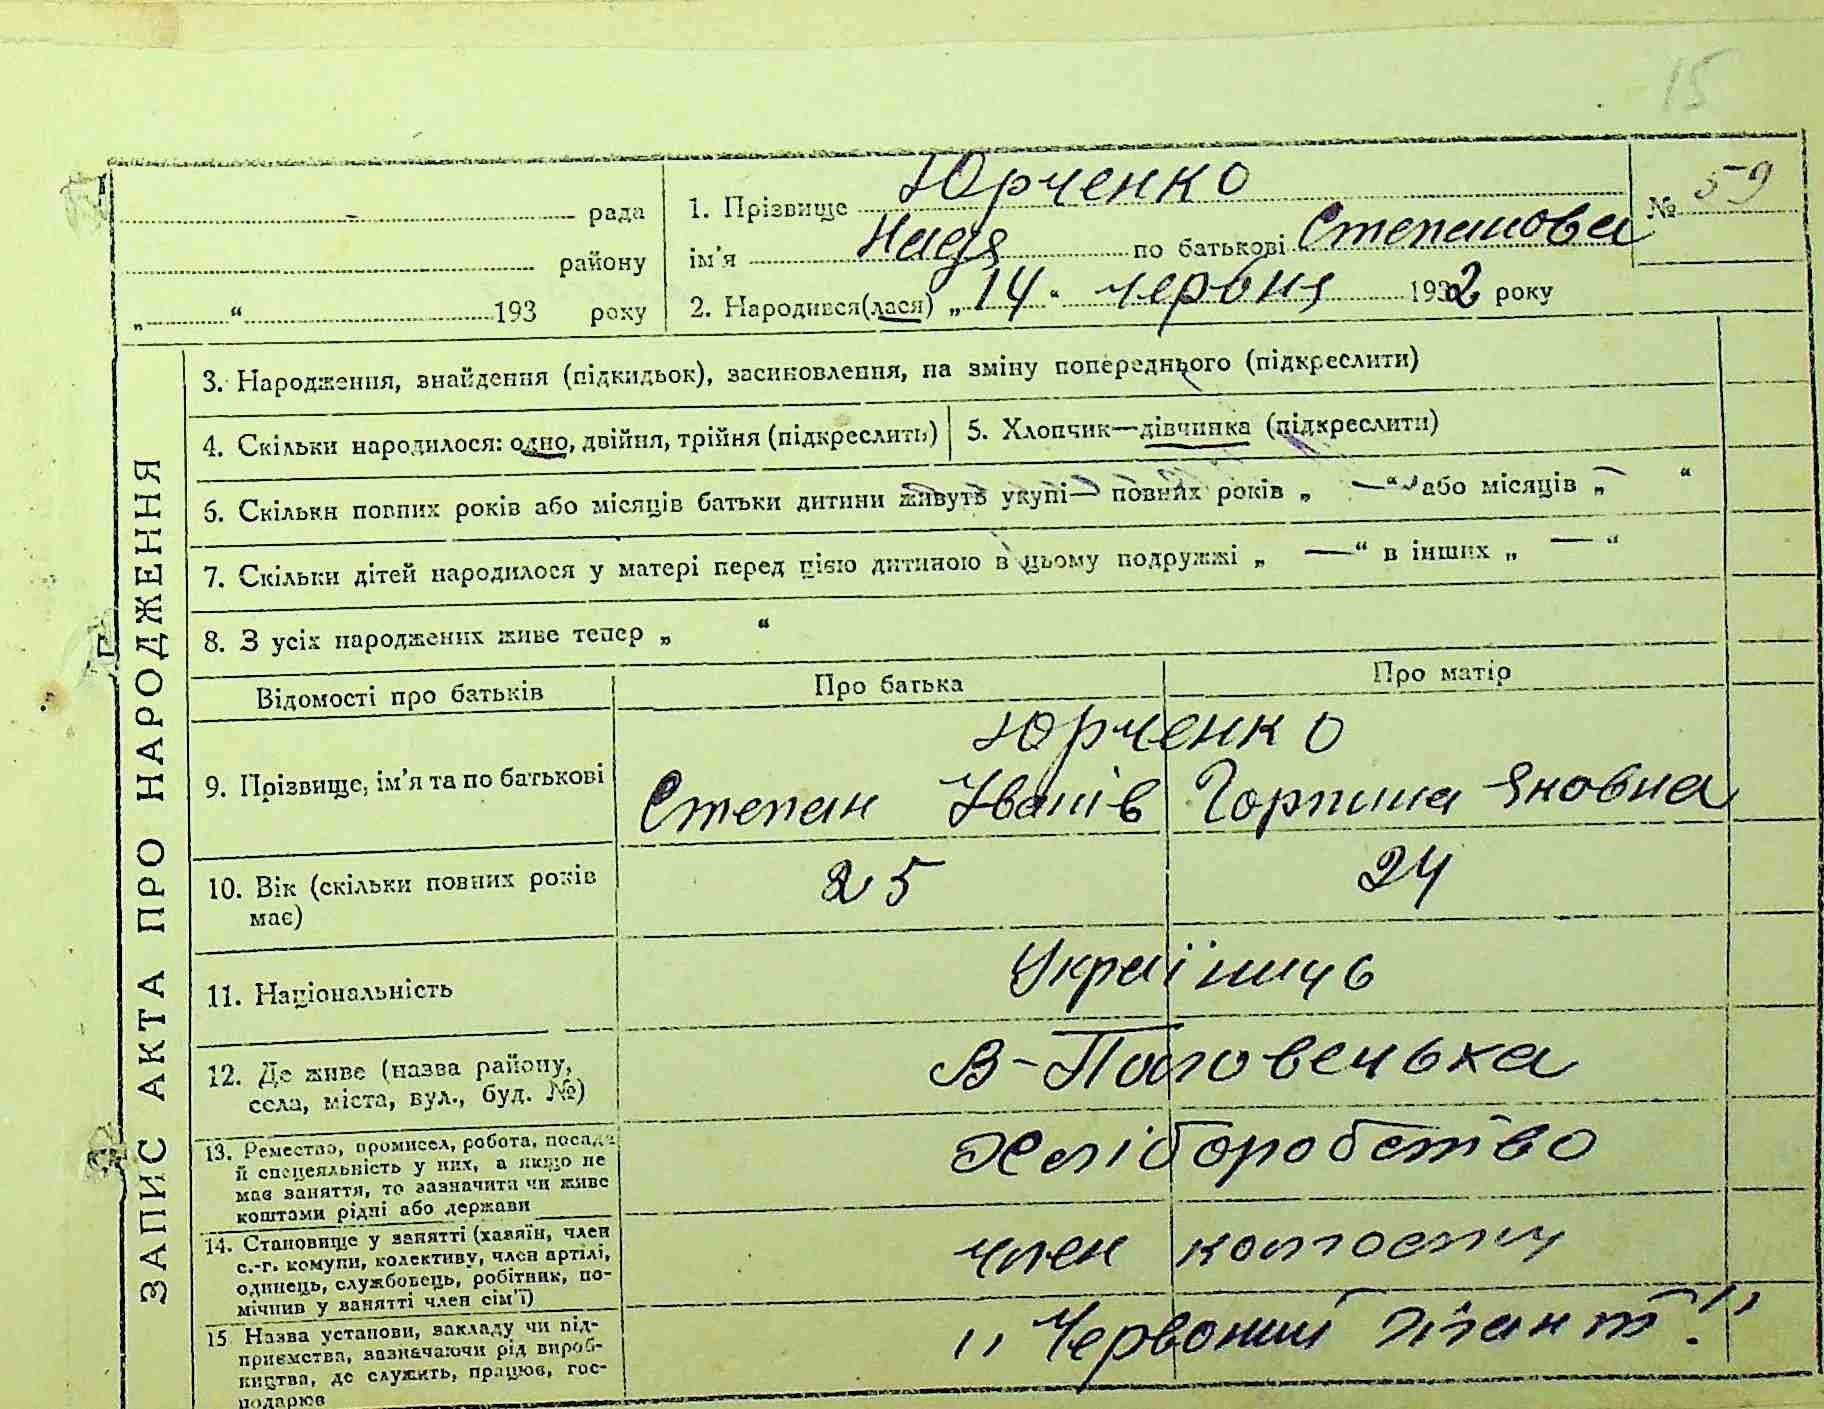 15
1. Прізвище Юрченко № 59
рада
ім'я Надя по батькові Степанова
району
2. Народився(лася) „14“ червня 1932 року
„ “ 193 року
ЗАПИС АКТА ПРО НАРОДЖЕННЯ
3. Народження, знайдення (підкидьок), засиновлення, на зміну попереднього (підкреслити)
4. Скільки народилося: одно, двійня, трійня (підкреслить) 5. Хлопчик—дівчинка (підкреслити)
6. Скільки повних років або місяців батьки дитини живуть укупі— повних років „ —“ або місяців „— “
7. Скільки дітей народилося у матері перед цією дитиною в цьому подружжі „ —“ в інших „ —“
8. З усіх народжених живе тепер „ “
Відомості про батьків Про батька Про матір
Юрченко
9. Прізвище, ім'я та по батькові Степан Іванів Горпина Яковна
10. Вік (скільки повних років 25 24
має)
11. Національність Українць
12. Де живе (назва району, В-Половецька
села, міста, вул., буд. №)
13. Ремество, промисел, робота, посада Хліборобство
й спецеяльність у них, а якщо не
має заняття, то зазначити чи живе
коштами рідні або держави
14. Становище у занятті (хазяїн, член член колгоспу
с.-г. комуни, колективу, член артілі,
одинець, службовець, робітник, по-
мічнив у занятті член сім'ї)
15 Назва установи, закладу чи під- „Червоний гігант"
приємства, зазначаючи рід вироб-
ництва, де служить, працює, гос-
подарює